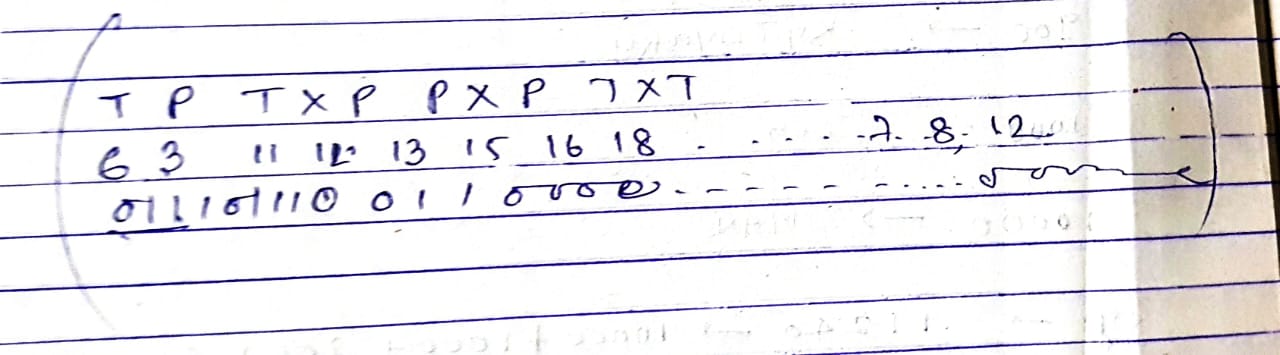 ( T P T X P P X P T X T )
6 3 11 12 13 15 16 18 . . . . . 7. 8, 12
0111101110 0 1 1 0000 - - - - - - .....